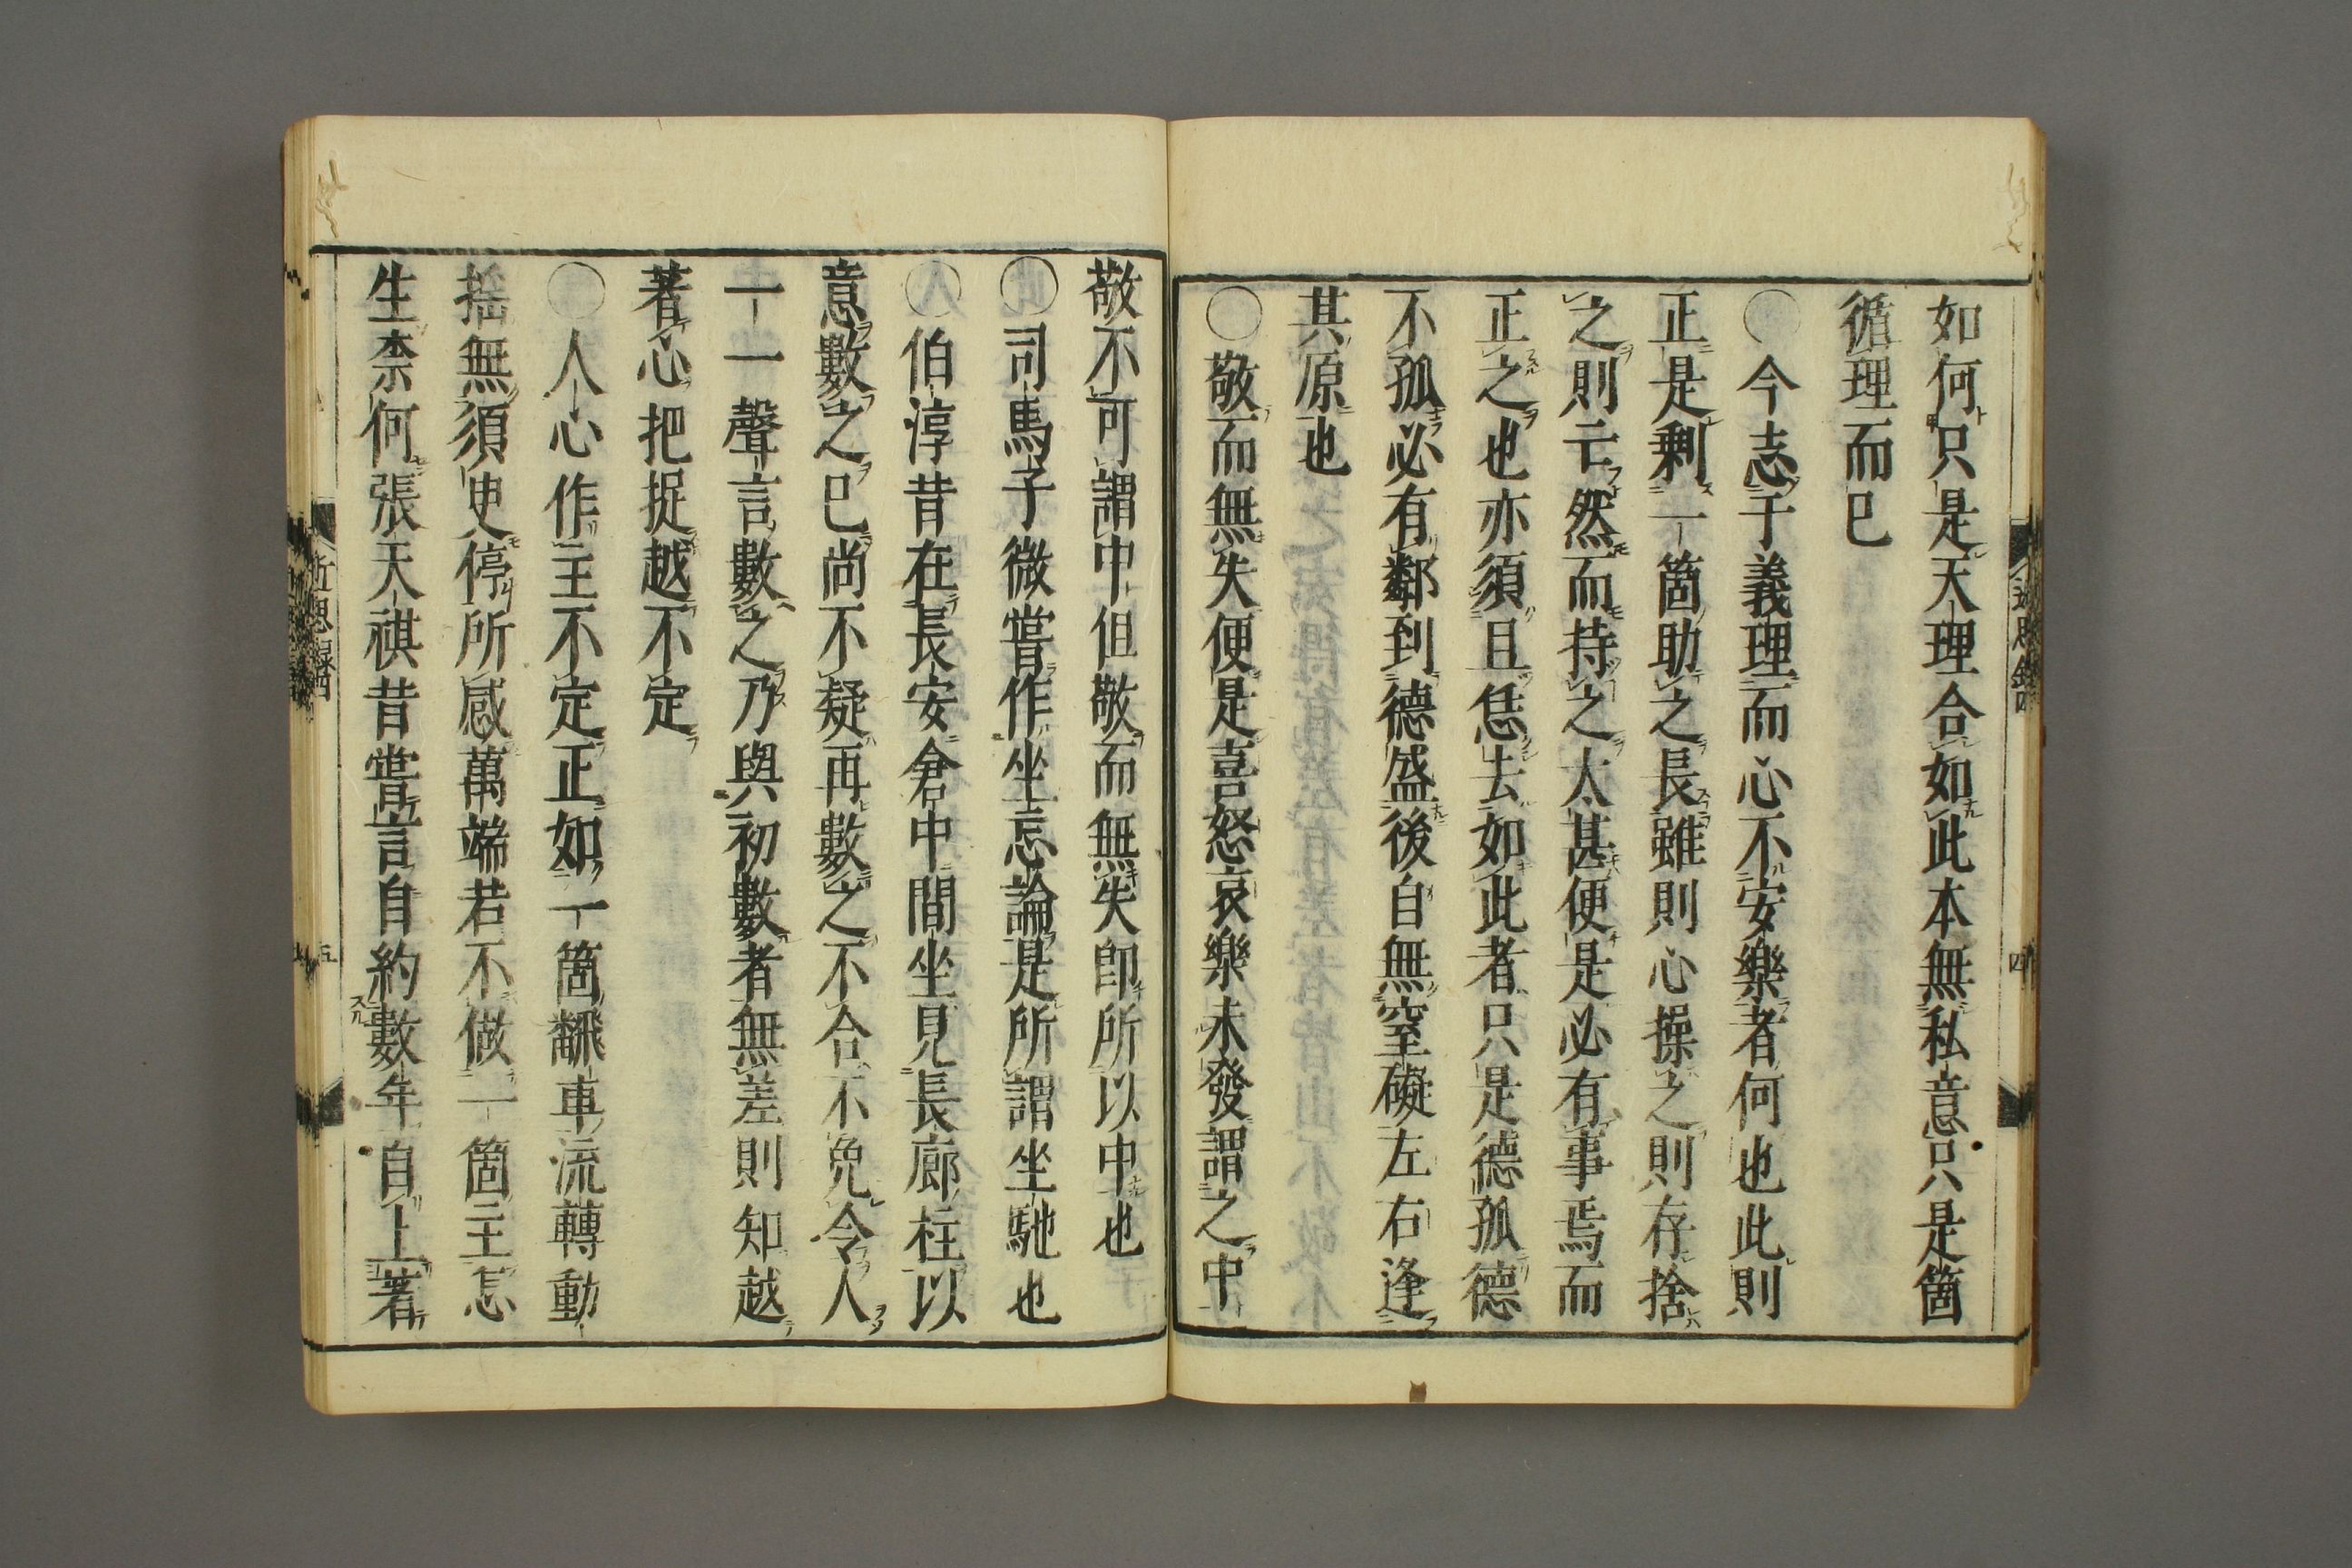 如何只是天理合如此本無私意只是箇
循理而已
○今志于義理而心不安樂者何也此則
正是剩一箇助之長雖則心操之則存捨
之則亡然而持之太甚便是必有事焉而
正之也亦須且恁去如此者只是德孤德
不孤必有鄰到德盛後自無窒礙左右逢
其原也
○敬而無失便是喜怒哀樂未發謂之中
敬不可謂中但敬而無失即所以中也
○司馬子微嘗作坐忘論是所謂坐馳也
○伯淳昔在長安倉中間坐見長廊柱以
意數之已尚不疑再數之不合不免令人
一一聲言數之乃與初數者無差則知越
著心把捉越不定
○人心作主不定正如一箇飜車流轉動
搖無須臾停所感萬端若不做一箇主怎
生柰何張天祺昔嘗言自約數年自上著
近思錄四
四
近思錄四
五